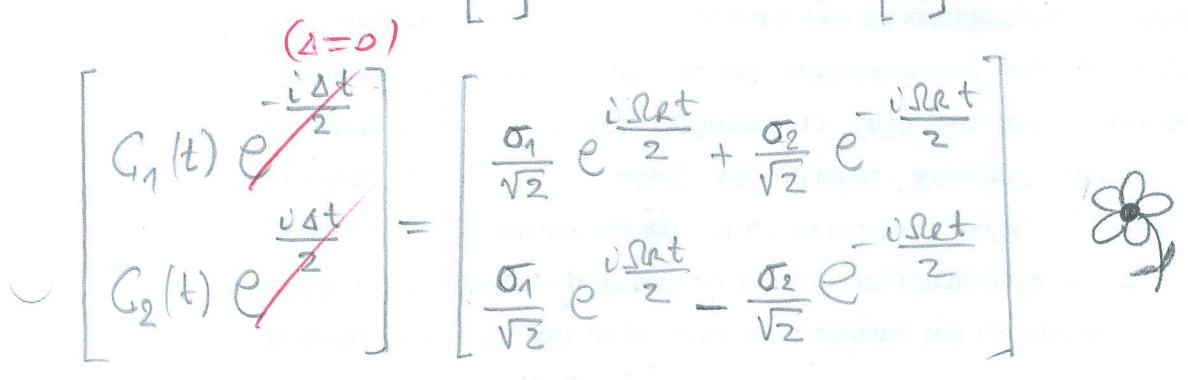 (Δ=0)
[ C₁(t) e^(-iΔt/2) ] = [ σ₁/√2 e^(iΩRt/2) + σ₂/√2 e^(-iΩRt/2) ]
[ C₂(t) e^(iΔt/2) ] = [ σ₁/√2 e^(iΩRt/2) - σ₂/√2 e^(-iΩRt/2) ]